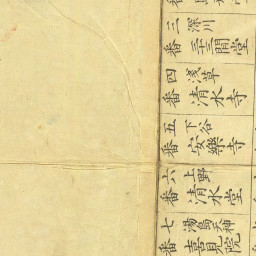 三番 深川 三十三間堂
四番 浅草 清水寺
五番 下谷 安樂寺
六番 上野 清水堂
七番 湯島天神 喜見院